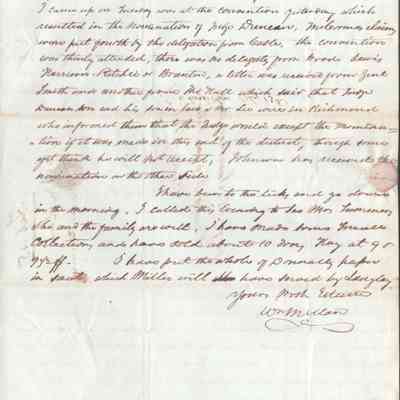 I came up on Tuesday was at the convention yesterday which
resulted in the nomination of Judge Duncan, McComas claims
were put fourth by the delegation from Cabell, the convention
was thinly attended, there was no delegate from Wood Lewis
Harrison Ritchie or Braxton, a letter was received from Gent
Smith and another from McNall which said that Judge
Duncan son and his were in Richmond
who informed them that the Judge would except the nomina=
tion if it was made in this end of the district, though some
yet think he will not accept, Johnson has received the
nomination on the other side
I have been to the licks and go down
in the morning. I called this evening to see Mrs
She and the family are well. I have made some
Collections and have sold about 10 Day at 90
I have put the whole of Donnally paper
in suit, which Miller will have served by
Yours With Esteem
Wm